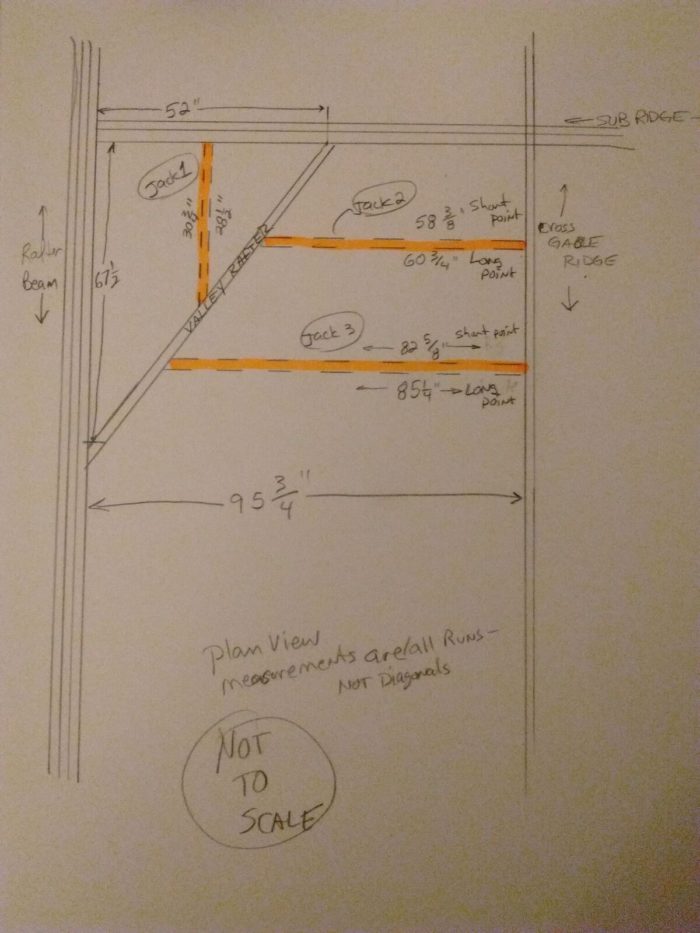 52"
SUB RIDGE
Jack 1
30 3/4"
28 1/2"
Jack 2
58 3/8" Short
point
60 3/4" Long
Point
Cross
GABLE
RIDGE
Rafter
Beam
67 1/2
VALLEY RAFTER
Jack 3
82 5/8" Short point
85 1/4" Long
point
95 3/4"
Plan View
measurements are/all RUNS-
NOT Diagonals
NOT
TO
SCALE